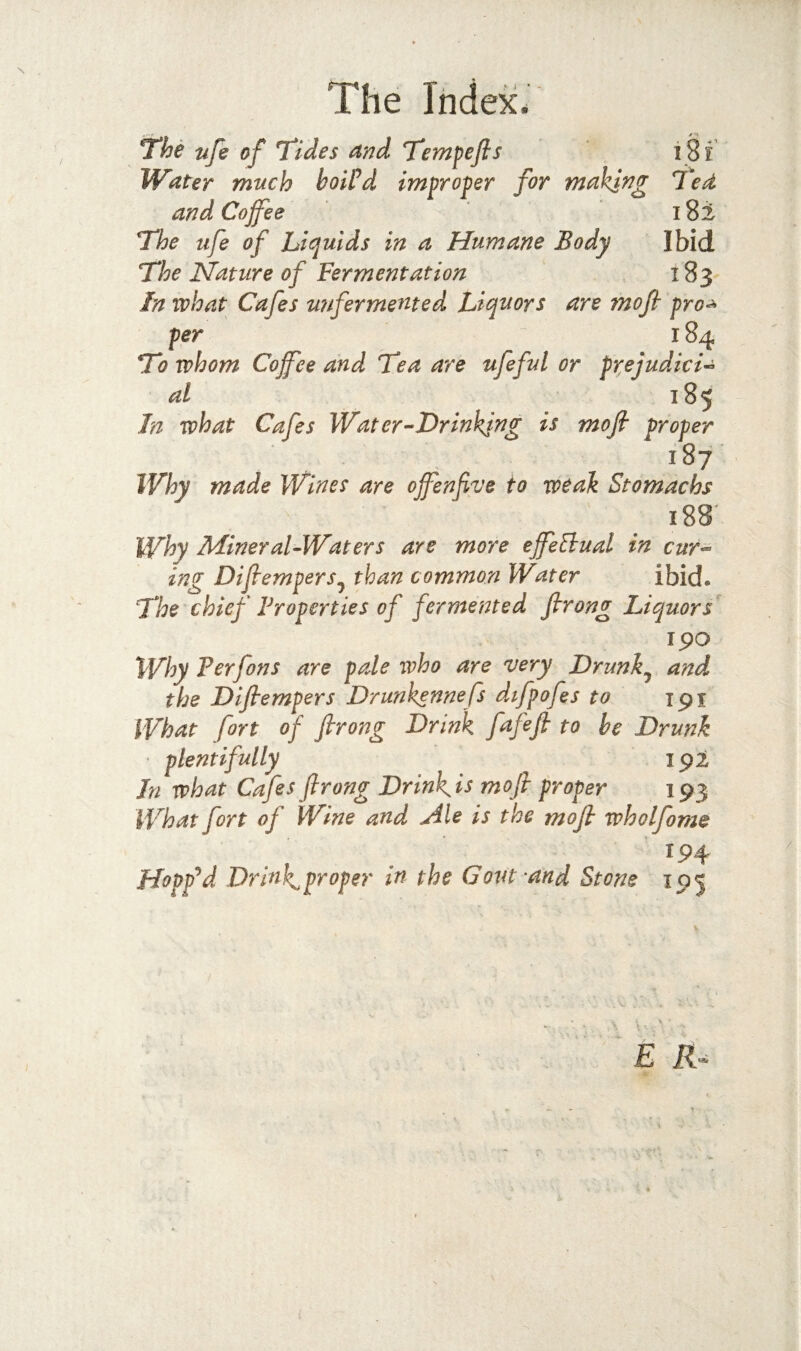 The Index.
The uſe of Tides and Tempeſts 181
Water much boil'd improper for making Tea
and Coffee 182
The uſe of Liquids in a Humane Body Ibid
The Nature of Fermentation 183
In what Caſes unfermented Liquors are moſt pro-
per 184
To whom Coffee and Tea are uſeful or prejudici-
al 185
In what Caſes Water-Drinking is moſt proper
187
Why made Wines are offenſive to weak Stomachs
188
Why Mineral-Waters are more effectual in cur-
ing Diſtempers, than common Water ibid.
The chief Properties of fermented ſtrong Liquors
190
Why Perſons are pale who are very Drunk, and
the Diſtempers Drunkenneſs diſpoſes to 191
What ſort of ſtrong Drink ſafeſt to be Drunk
plentifully 192
In what Caſes ſtrong Drink is moſt proper 193
What ſort of Wine and Ale is the moſt wholſome
194
Hopp'd Drink proper in the Gout and Stone 195
E R-